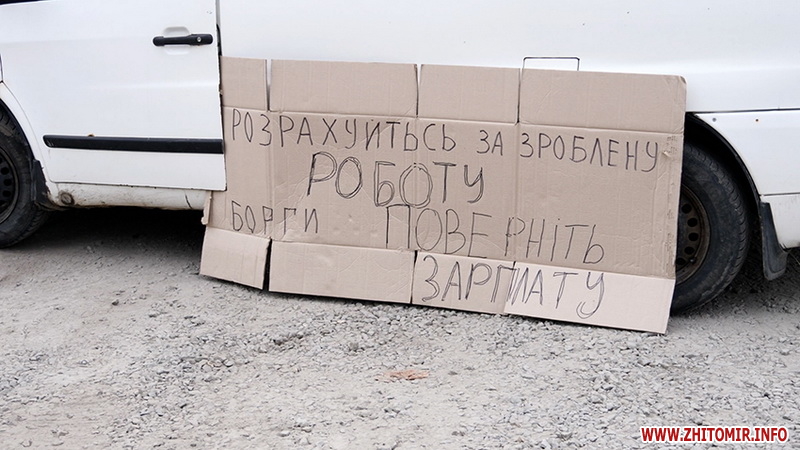 РОЗРАХУЙТЬСЬ ЗА ЗРОБЛЕНУ
РОБОТУ
БОРГИ ПОВЕРНІТЬ
ЗАРПЛАТУ
WWW.ZHITOMIR.INFO